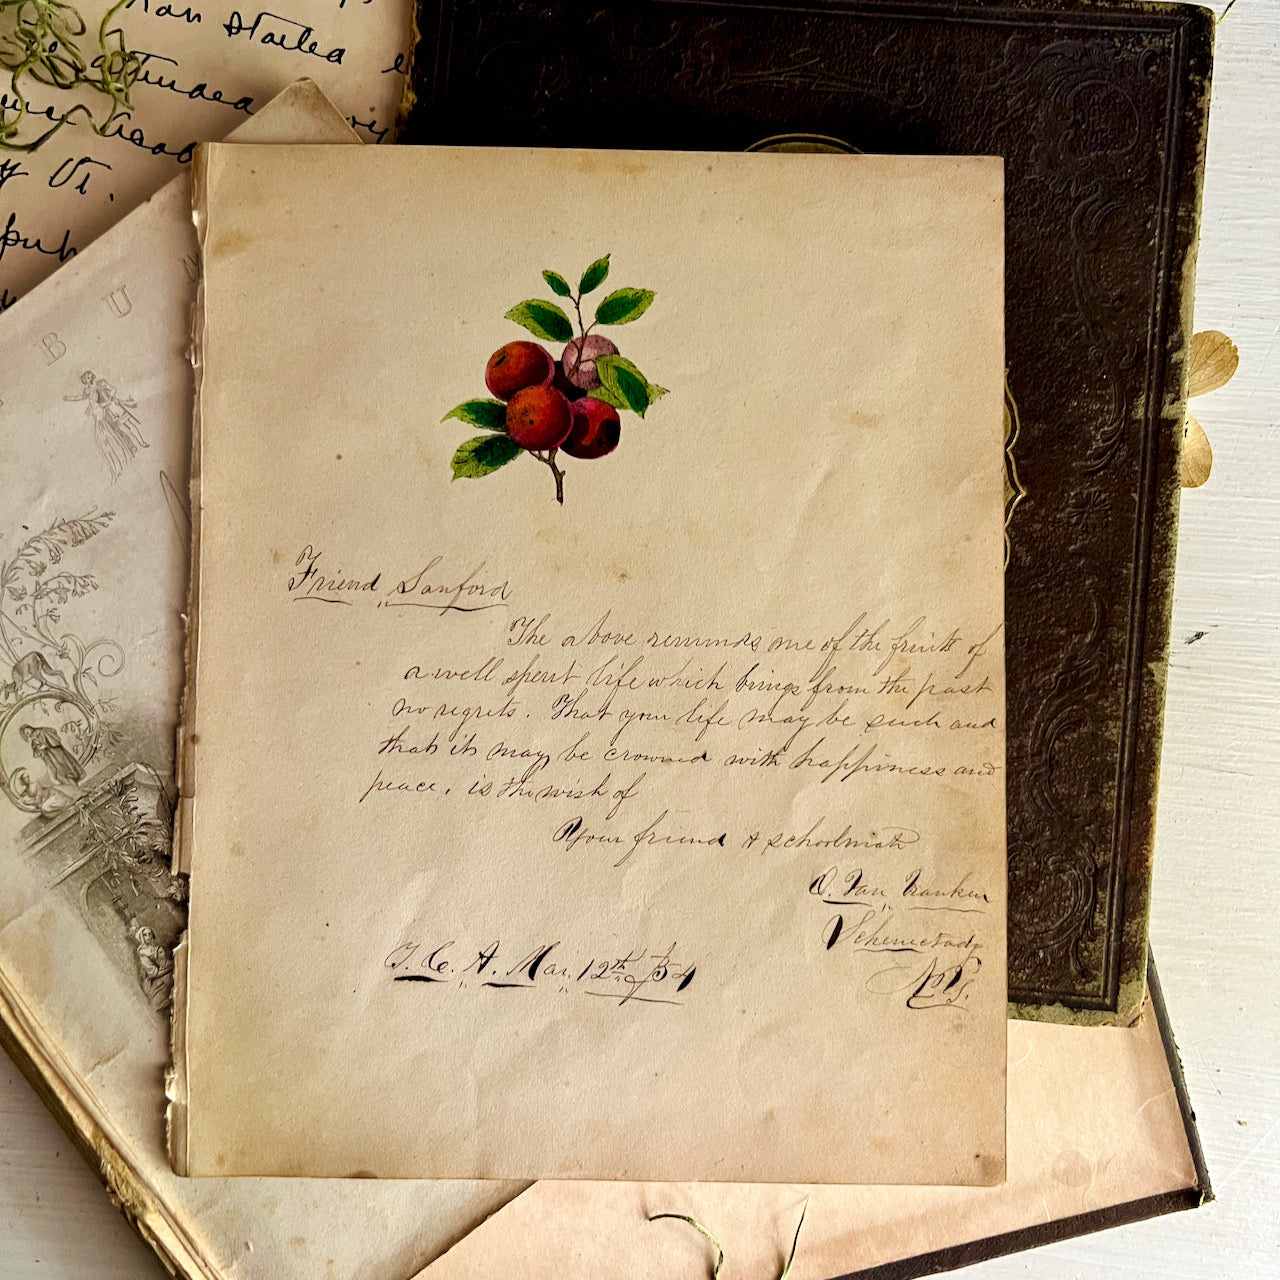 ran started
attended
Vt.
B U
Friend Sanford
The above reminds me of the fruits of
a well spent life which brings from the past
no regrets. That your life may be such and
that it may be crowned with happiness and
peace, is the wish of
Your friend & schoolmate
Schenectady
N.Y.
Mar. 12th /54